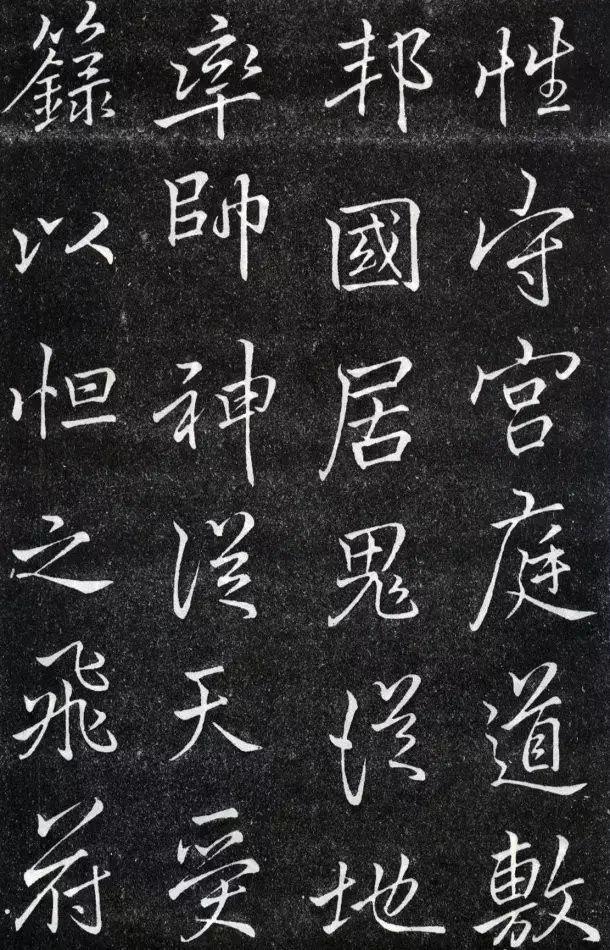 性守宫庭道敷
邦國居鬼從地
率帥神從天受
籙以怛之飛符